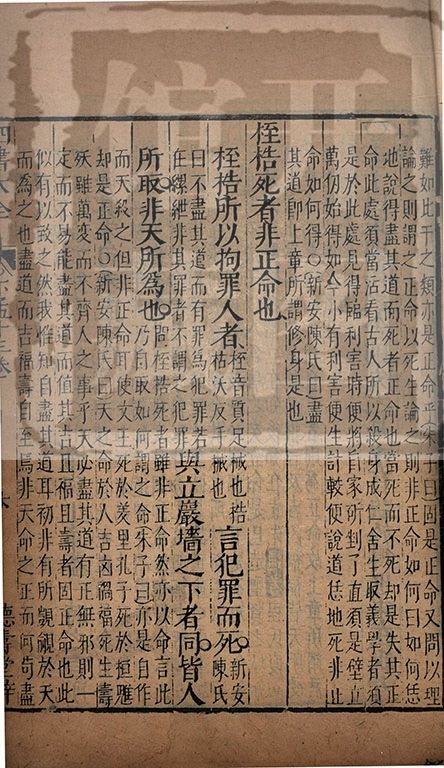 難如比干之類亦是正命乎朱子曰固是正命又問以理
論之則謂之正命以死生論之則非正命如何曰如何恁
也說得盡其道而死者正命也當死而不死却是失其正
命此處須當活看古人所以殺身成仁舍生取義學者須
是於此處見得臨利害時便將自家斫剉了直須是壁立
萬仞始得如今小有利害便生計較便說道恁地死非止
命如何得○新安陳氏曰盡
其道即上章所謂修身是也
桎梏死者非正命也
桎梏所以拘罪人者桎音質足械也梏枯沃反手械也言犯罪而死新安陳氏
曰不盡其道而有罪為犯罪若在縲絏非其罪者不謂之犯罪與立巖墻之下者同皆人
所取非天所為也問桎梏死者雖非正命然亦以命言此乃自取如何謂之命朱子曰亦是自作
而天殺之但非正命耳使文王死於羑里孔子死於桓魋
却是正命○新安陳氏曰天之命於人吉凶禍福死生壽
殀雖萬變而不齊人之事乎天必盡其道有正無邪則一
定而不易能盡其道而值其吉且福且壽者固正命也此
似有以致之然我惟知自盡其道耳初非有所覬覦於天
而為之也盡道而吉福壽自至焉非天命之正而何苟盡
四書大全 下孟十三卷 六 德壽堂梓